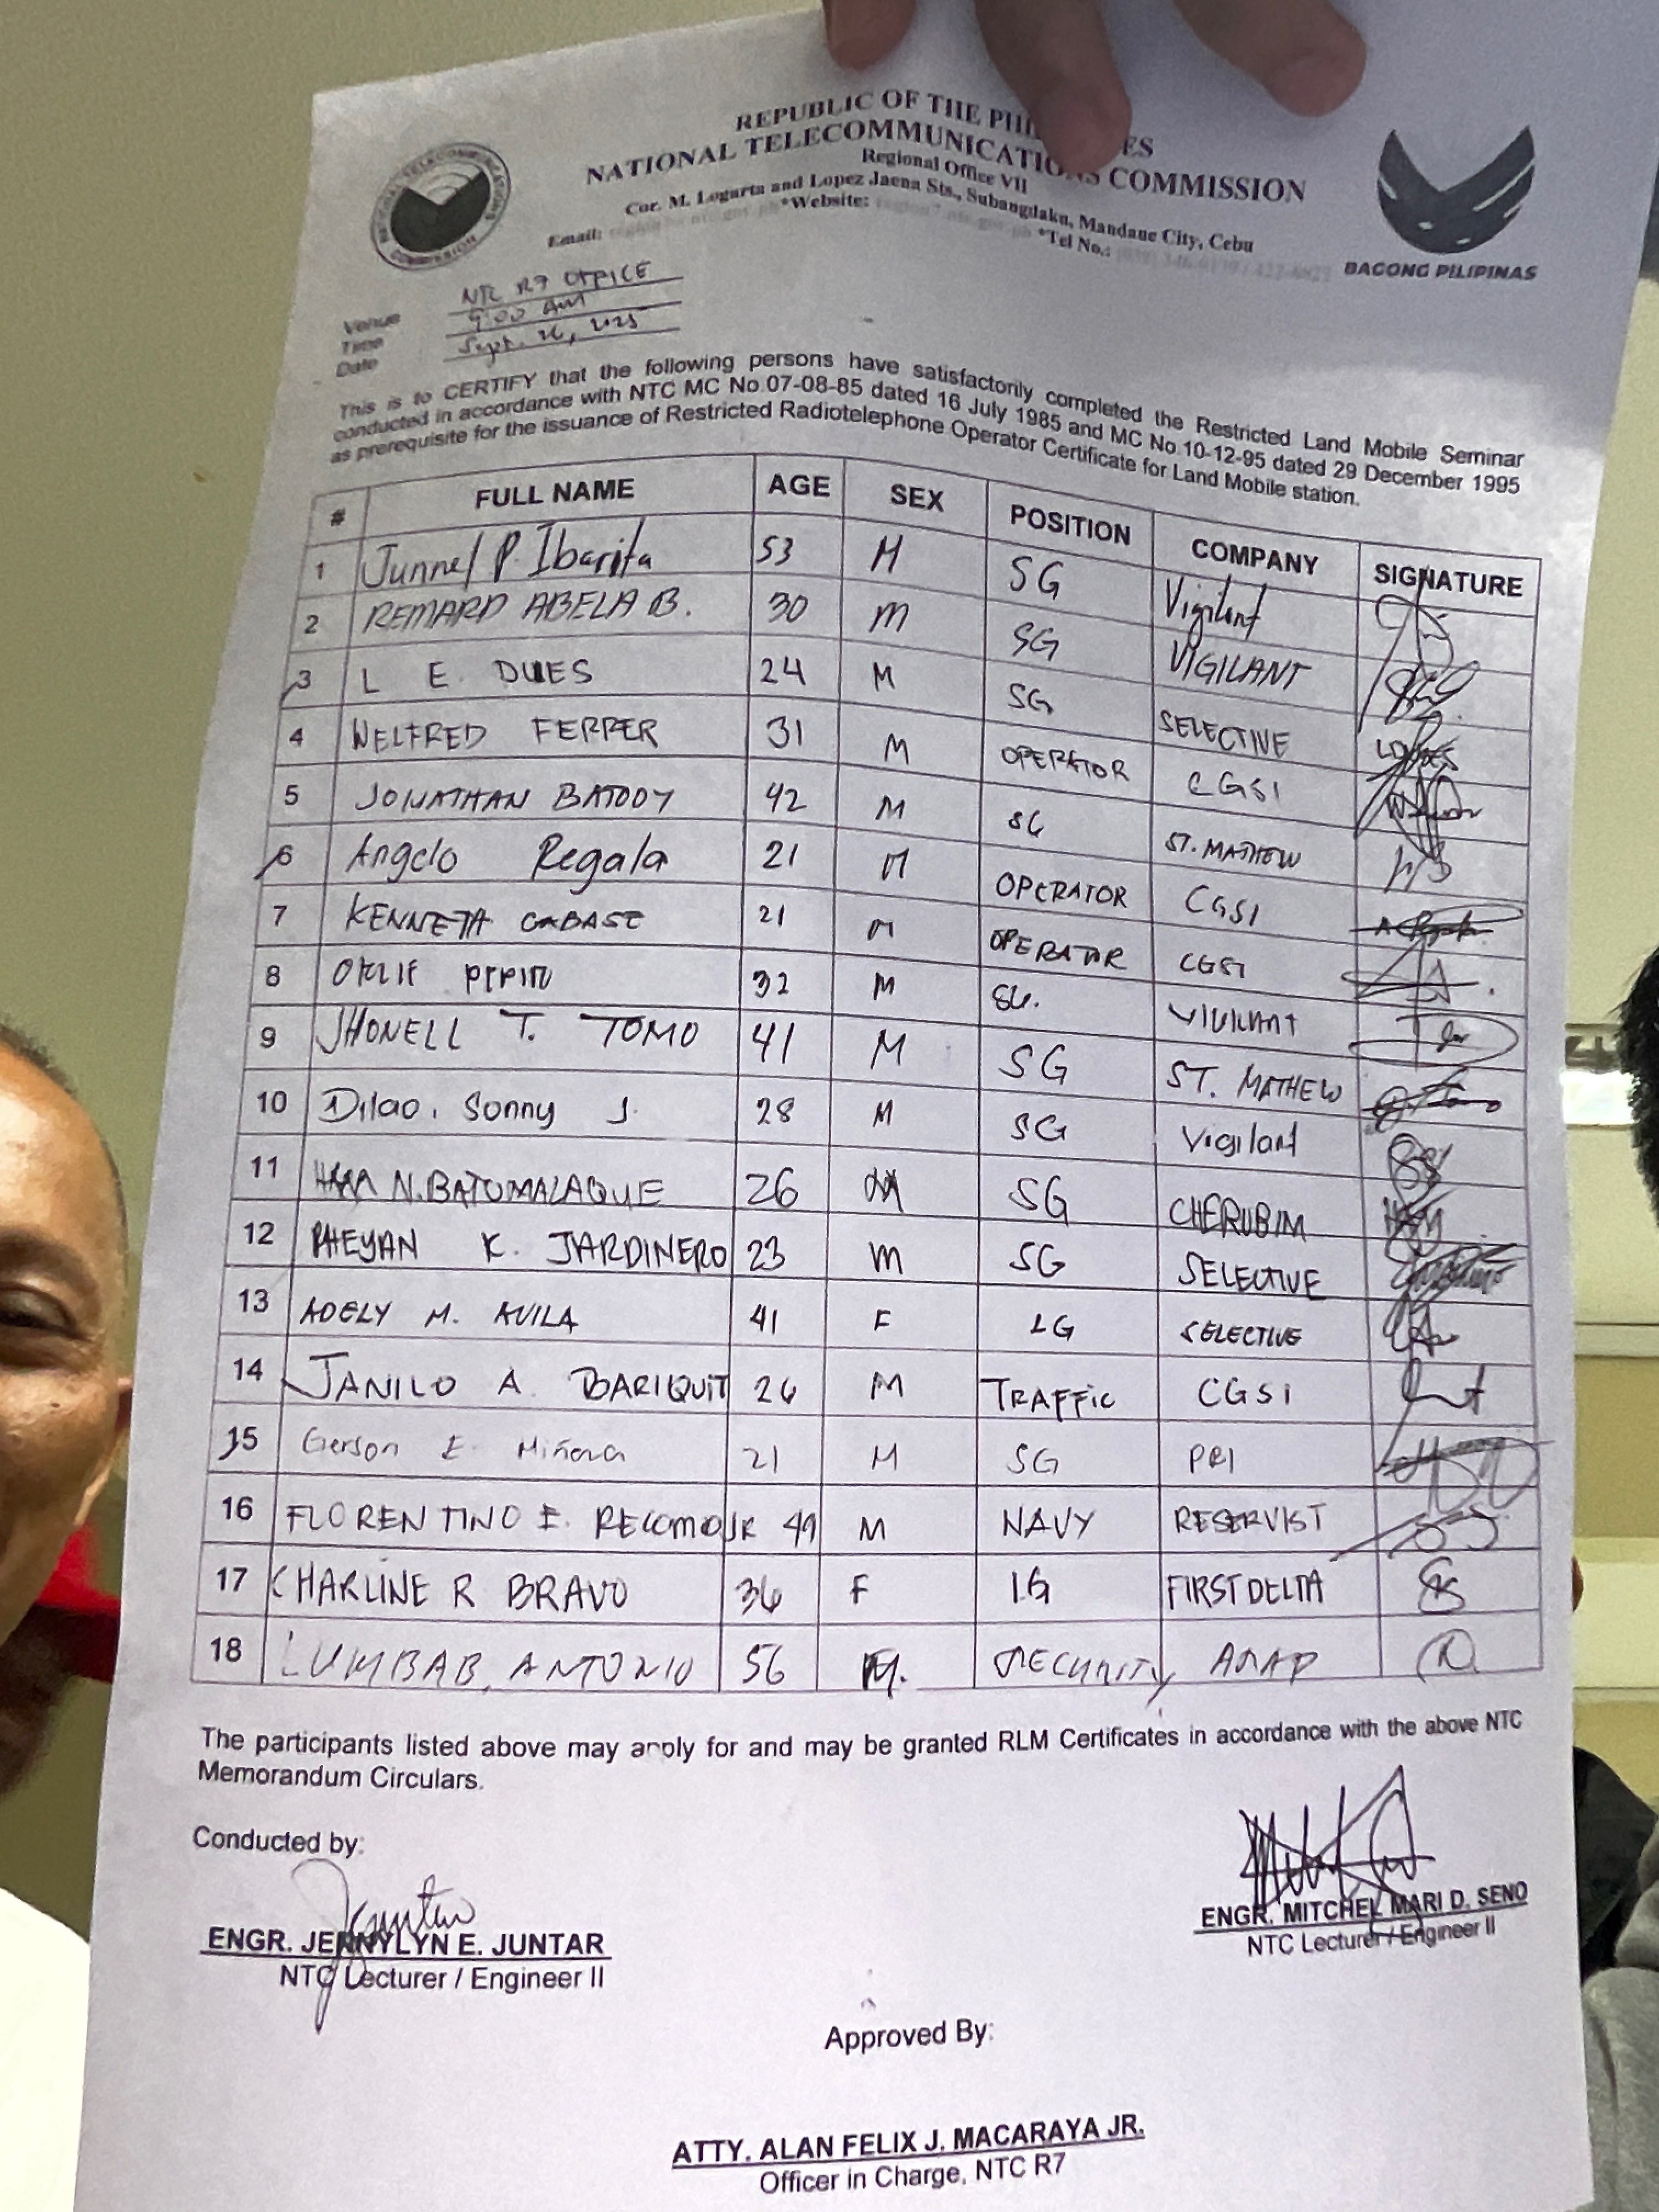 REPUBLIC OF THE PHI ES
NATIONAL TELECOMMUNICATIONS COMMISSION
Regional Office VII
Cor. M. Logarta and Lopez Jaena Sts., Subangdaku, Mandaue City, Cebu
Email: *Website: *Tel No.:
BAGONG PILIPINAS
Venue NTC R7 OFFICE
Time 9:00 AM
Date Sept. 26, 2025
This is to CERTIFY that the following persons have satisfactorily completed the Restricted Land Mobile Seminar
conducted in accordance with NTC MC No.07-08-85 dated 16 July 1985 and MC No.10-12-95 dated 29 December 1995
as prerequisite for the issuance of Restricted Radiotelephone Operator Certificate for Land Mobile station.
# FULL NAME AGE SEX POSITION COMPANY SIGNATURE
1 Junnel P. Ibarita 53 M SG Vigilant
2 REMARD ABELA B. 30 M SG VIGILANT
3 L E. DUES 24 M SG SELECTIVE
4 WELFRED FERRER 31 M OPERATOR CGSI
5 JONATHAN BATODY 42 M SG ST. MATHEW
6 Angelo Regala 21 M OPERATOR CGSI
7 KENNETH CABASE 21 M OPERATOR CGSI
8 PEPITO 32 M SG. VIGILANT
9 JHONELL T. TOMO 41 M SG ST. MATHEW
10 Dilao, Sonny J. 28 M SG Vigilant
11 N. BATUMALAQUE 26 M SG CHERUBIM
12 RHEYAN K. JARDINERO 23 M SG SELECTIVE
13 ADELY M. AVILA 41 F LG SELECTIVE
14 JANILO A. BARIQUIT 26 M TRAFFIC CGSI
15 Gerson E. Miñoza 21 M SG
16 FLORENTINO E. RECOMO JR 49 M NAVY RESERVIST
17 CHARLINE R BRAVO 36 F LG FIRST DELTA
18 LUMBAB, ANTONIO 56 M. SECURITY ASAP
The participants listed above may apply for and may be granted RLM Certificates in accordance with the above NTC
Memorandum Circulars.
Conducted by:
ENGR. JENNYLYN E. JUNTAR
NTC Lecturer / Engineer II
ENGR. MITCHEL MARI D. SENO
NTC Lecturer / Engineer II
Approved By:
ATTY. ALAN FELIX J. MACARAYA JR.
Officer in Charge, NTC R7